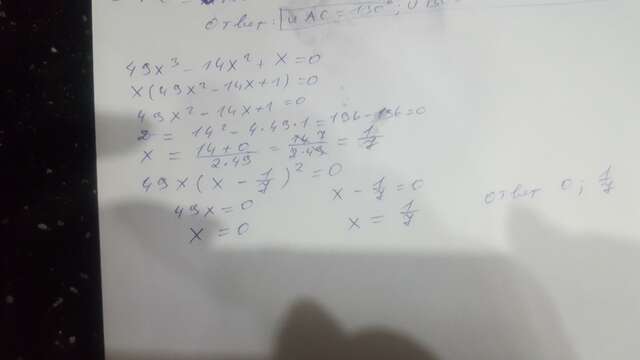 Ответ: ∪ AC = 130°; ∪
49x³ - 14x² + x = 0
x(49x² - 14x + 1) = 0
49x² - 14x + 1 = 0
D = 14² - 4·49·1 = 196 - 196 = 0
x = (14 + 0)/(2·49) = 14/(2·49) = 1/7
49x(x - 1/7)² = 0
49x = 0 x - 1/7 = 0 ответ 0; 1/7
x = 0 x = 1/7